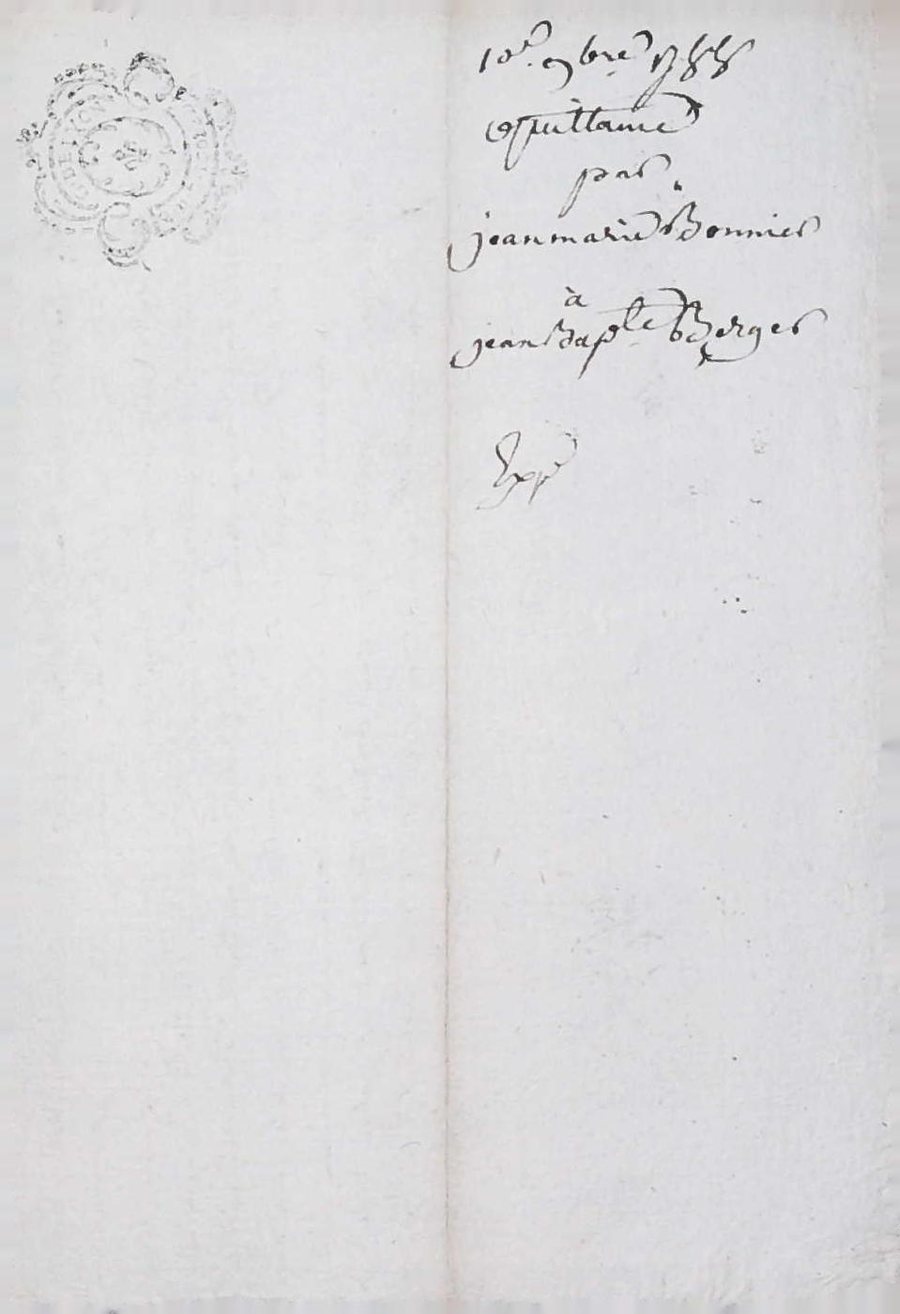 10e. 9bre 1788
quittance
par
jean marie Bonnier
à
jean Bapte Berger
Expé